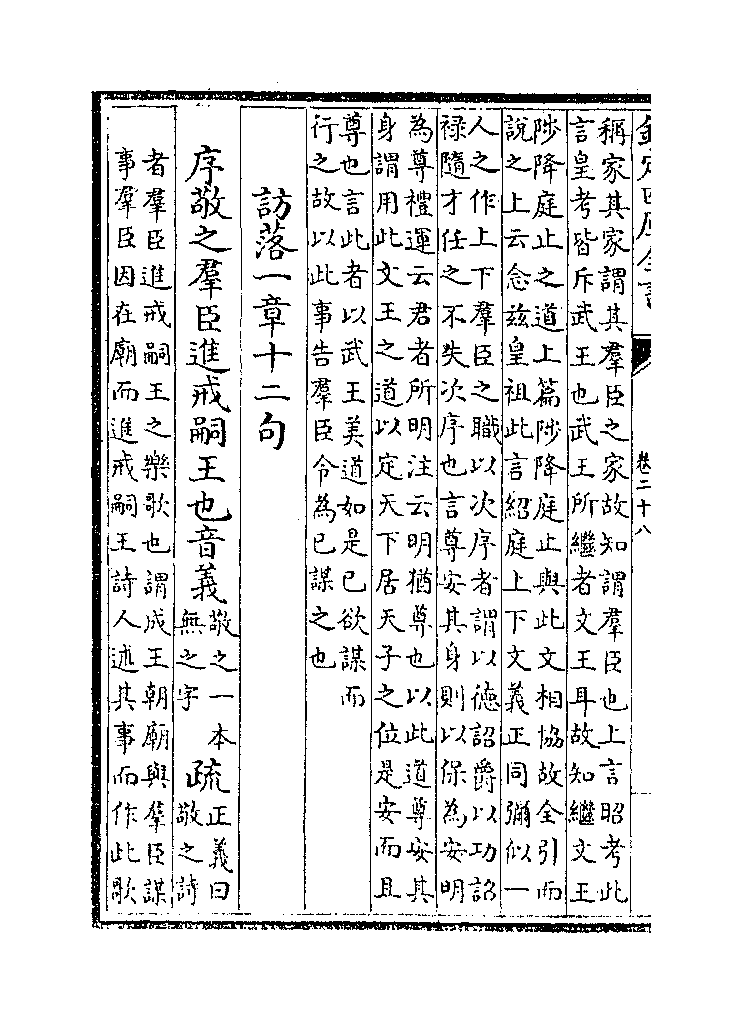 欽定四庫全書
卷二十八
稱家其家謂其羣臣之家故知謂羣臣也上言昭考此
言皇考皆斥武王也武王所繼者文王耳故知繼文王
陟降庭止之道上篇陟降庭止與此文相協故全引而
說之上云念兹皇祖此言紹庭上下文義正同彌似一
人之作上下羣臣之職以次序者謂以德詔爵以功詔
祿隨才任之不失次序也言尊安其身則以保為安明
為尊禮運云君者所明注云明猶尊也以此道尊安其
身謂用此文王之道以定天下居天子之位是安而且
尊也言此者以武王美道如是已欲謀而
行之故以此事告羣臣令為已謀之也
訪落一章十二句
序敬之羣臣進戒嗣王也音義敬之一本無之字疏正義曰敬之詩
者羣臣進戒嗣王之樂歌也謂成王朝廟與羣臣謀
事羣臣因在廟而進戒嗣王詩人述其事而作此歌